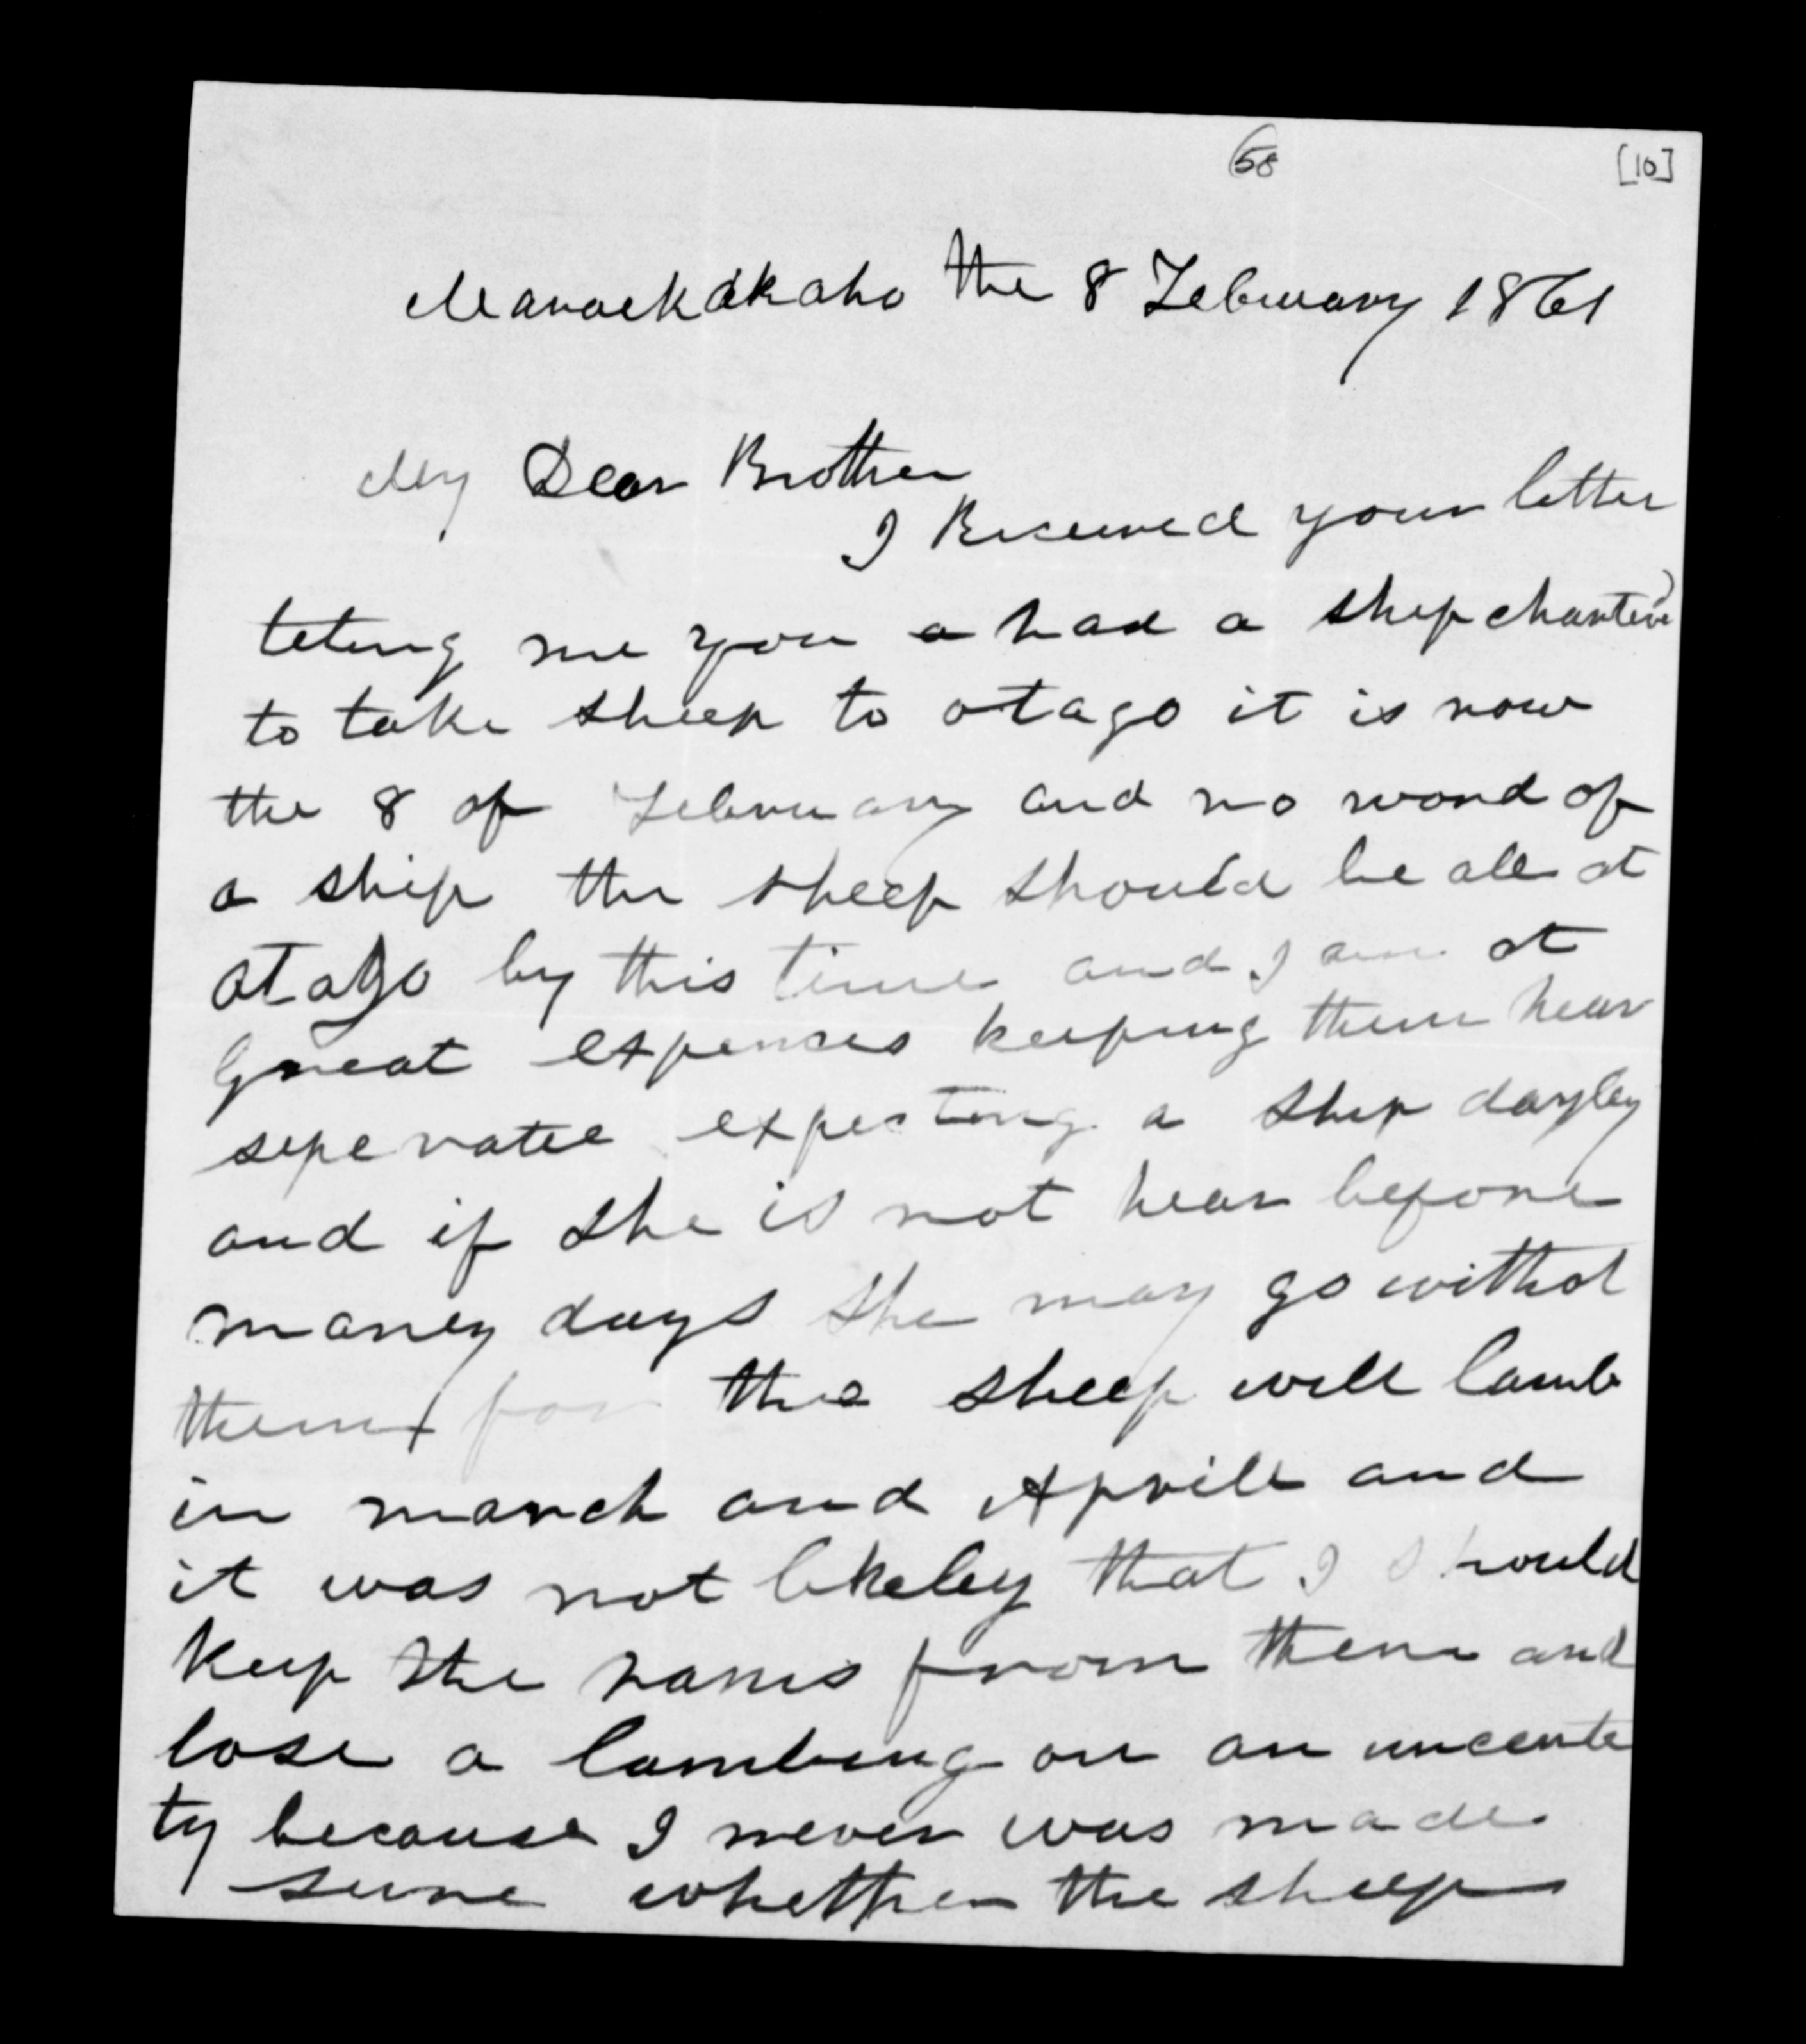 58 [10]
Maraekakaho the 8 February 1861
My Dear Brother
I Received your letter
teting me you a had a ship charterd
to take sheep to otago it is now
the 8 of February and no word of
a ship the sheep should be all at
otago by this time and I am at
Great expences keeping them hear
seperatee expecting a ship dayley
and if she is not hear before
maney days she may go withot
them for the sheep will lamb
in march and Aprill and
it was not likeley that I should
keep the rams from them and
lose a lambing on an uncerte
ty because I never was made
sure whether the sheep